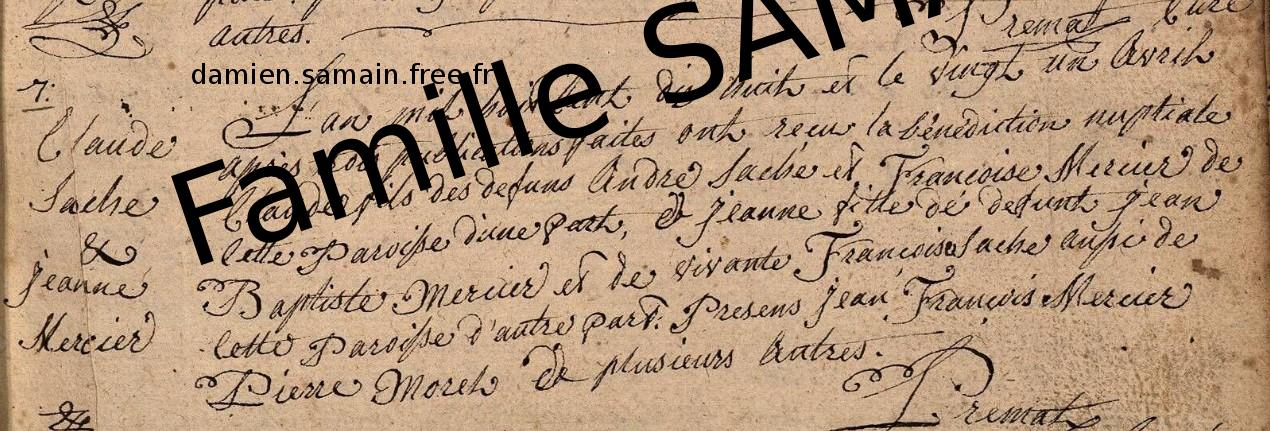 autres.
Premat Curé
damien.samain.free.fr
Famille SAMA
7.
Claude
Sache
&
Jeanne
Mercier
L'an mil huit cent dix huit et le vingt un Avril
après trois publications faites ont reçu la bénédiction nuptiale
Claude fils des defuns André Sache et Françoise Mercier de
cette Paroisse d'une part, & Jeanne fille de defunt Jean
Baptiste Mercier et de vivante Françoise Sache aussi de
cette Paroisse d'autre part. Presens Jean François Mercier
Pierre Morel & plusieurs autres.
Premat